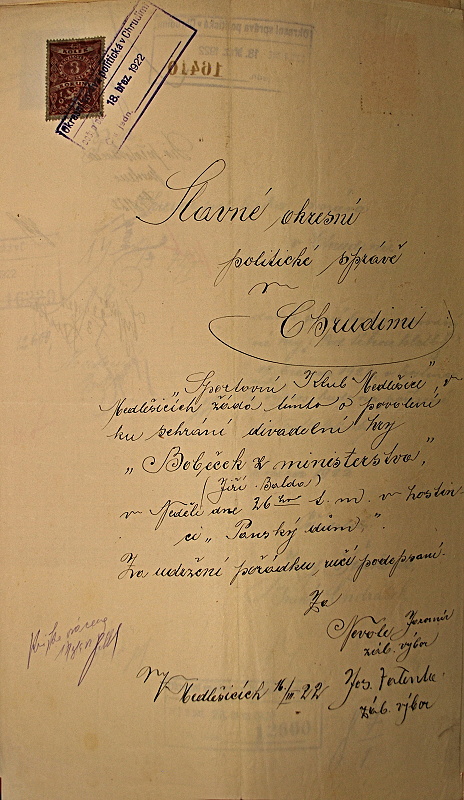 KOLEK
3
Okresní správa politická v Chrudimi
18. břez. 1922
16410
Slavné okresní
politické správě
v
Chrudimi
"Sportovní Klub Medlešice", v
Medlešicích žádá tímto o povolení
ku sehrání divadelní hry
"Bobeček z ministerstva,"
(Jiří Balda)
v Neděli dne 26ho t. m. v hostin
ci "Panský dům".
Za udržení pořádku, ručí podepsaní.
Za
Nevole Jaromír
záb. výbor
V Medlešicích 16/III 22
Jos.
záb. výbor